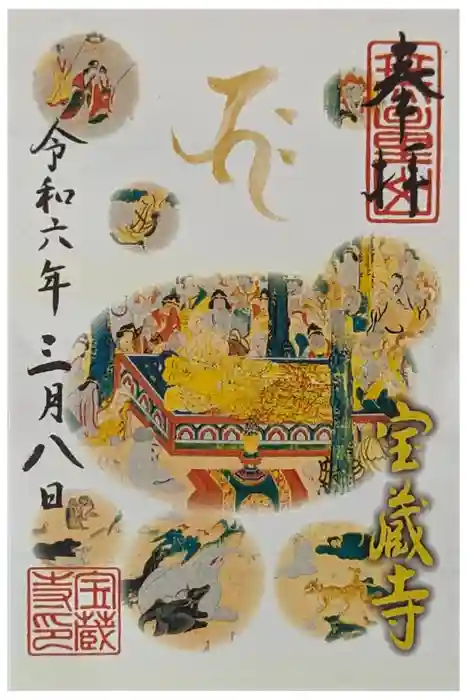 奉拝
令和六年三月八日
宝蔵寺
宝蔵
寺印